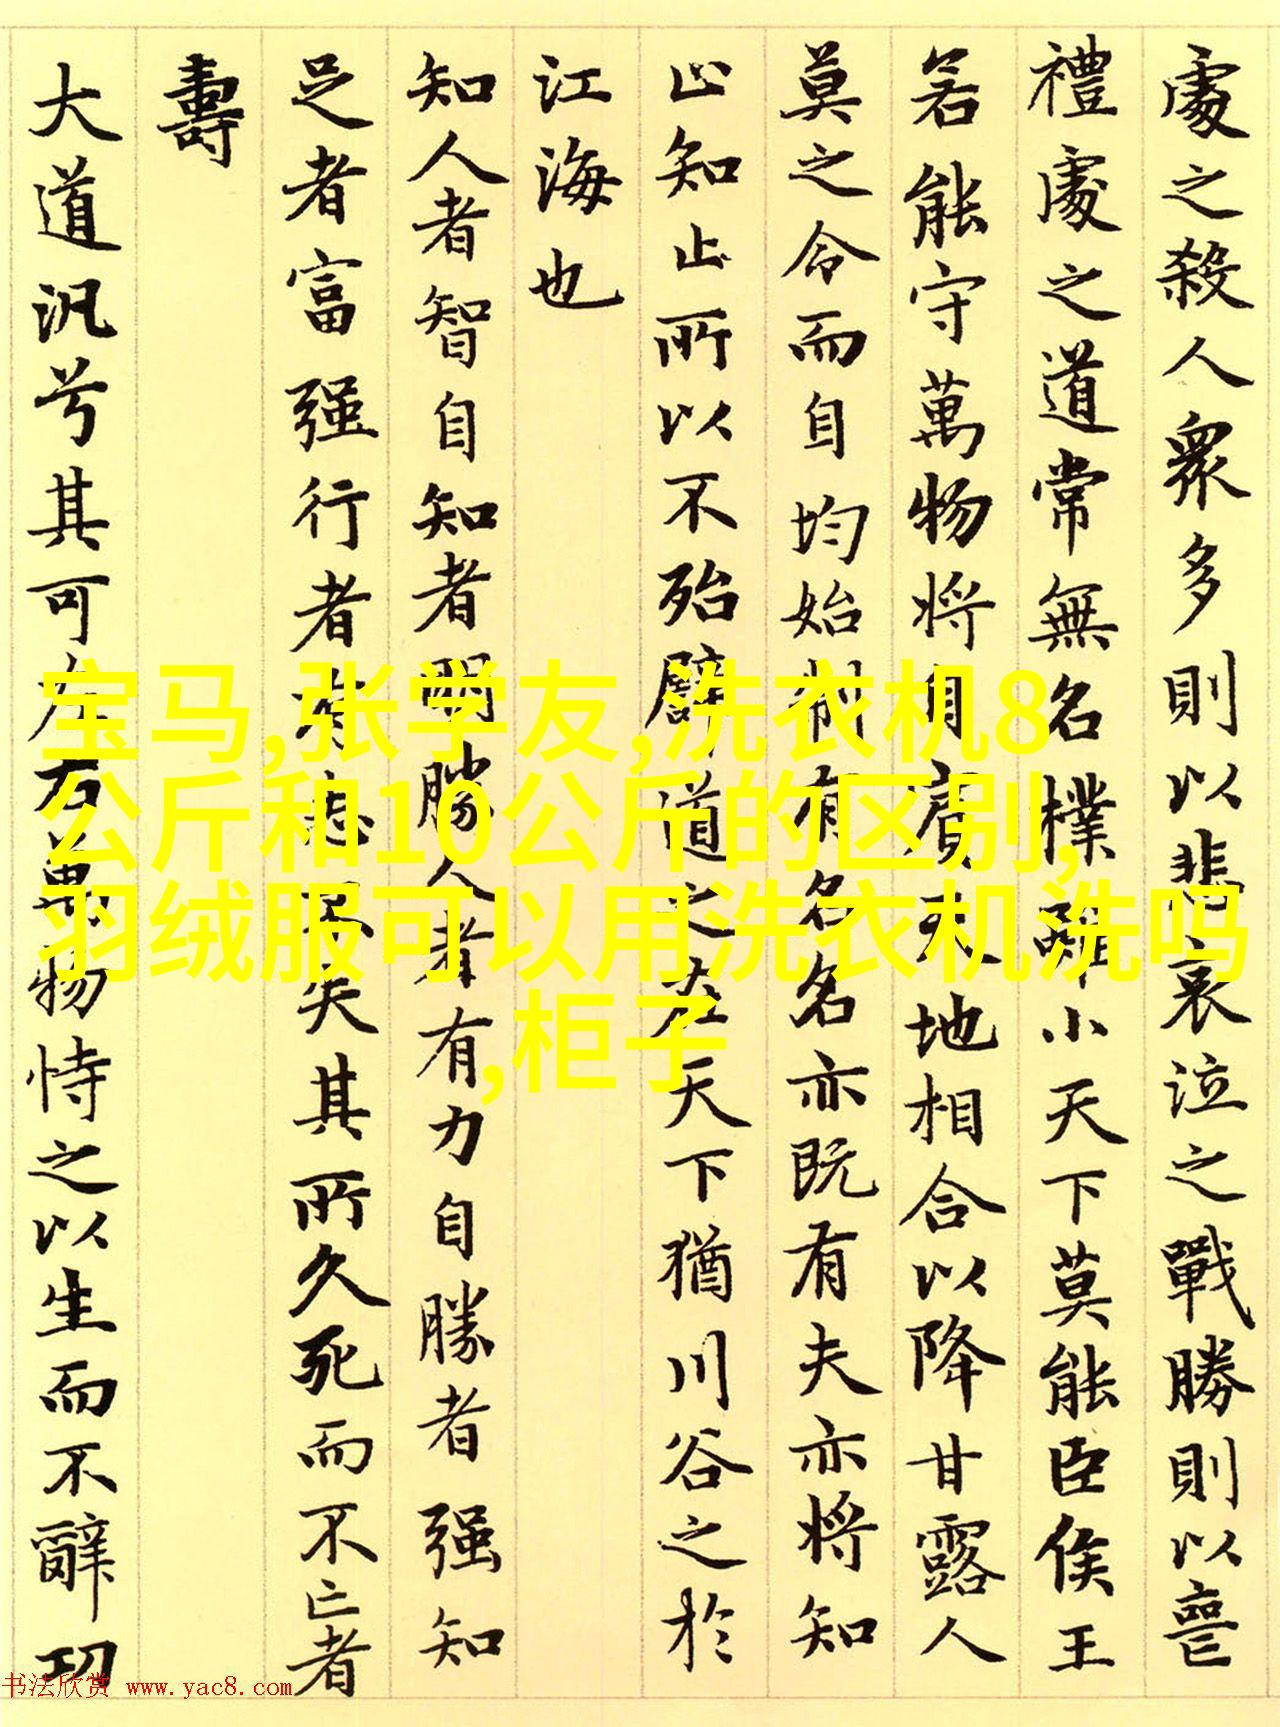 處之殺人衆多則以悲哀泣之戰勝則以喪
禮處之道常無名樸雖小天下莫能臣侯王
若能守萬物將自賓天地相合以降甘露人
莫之令而自均始制有名名亦既有夫亦將知
止知止所以不殆譬道之在天下猶川谷之於
江海也
知人者智自知者明勝人者有力自勝者强知
足者富强行者有志不失其所久死而不亡者
壽
大道汎兮其可左右萬物恃之以生而不辭功
宝马,张学友,洗衣机8
公斤和10公斤的区别,
羽绒服可以用洗衣机洗吗
,柜子
书法欣赏 www.yac8.com